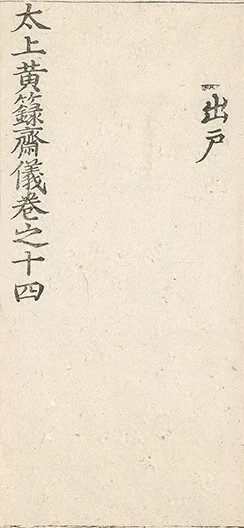 出戶
太上黃籙齋儀卷之十四